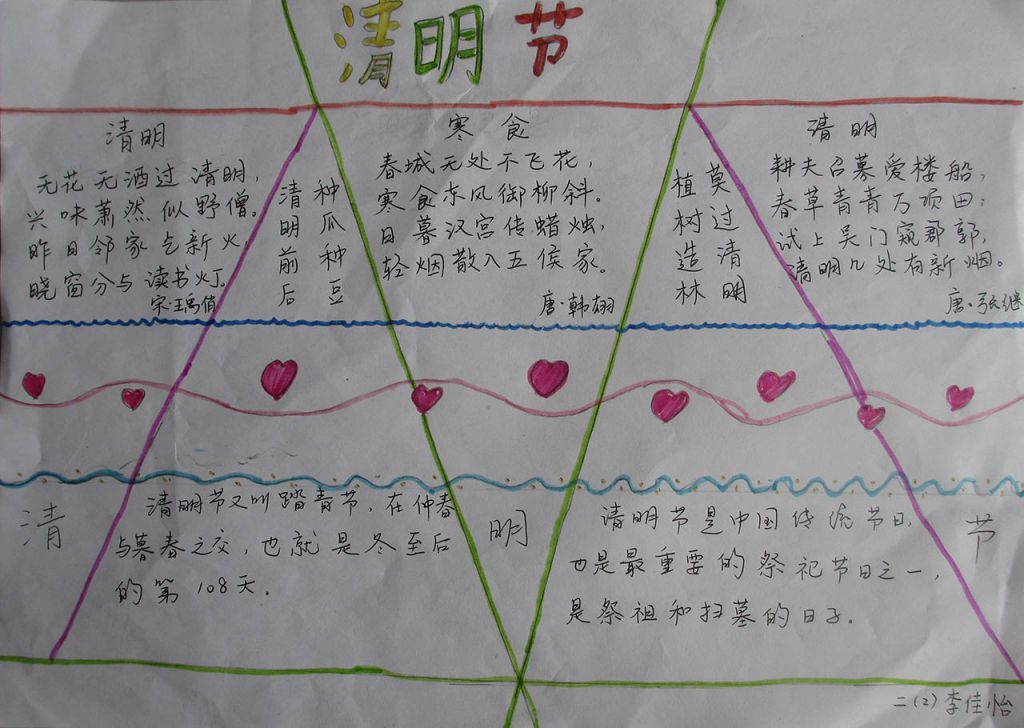 清明节
清明
无花无酒过清明，
兴味萧然似野僧。
昨日邻家乞新火，
晓窗分与读书灯。
宋·王禹偁
清明前后
种瓜种豆
寒食
春城无处不飞花，
寒食东风御柳斜。
日暮汉宫传蜡烛，
轻烟散入五侯家。
唐·韩翃
植树造林
莫过清明
清明
耕夫召募爱楼船，
春草青青万项田；
试上吴门窥郡郭，
清明几处有新烟。
唐·张继
清
清明节又叫踏青节，在仲春
与暮春之交，也就是冬至后
的第108天.
明
清明节是中国传统节日，
也是最重要的祭祀节日之一，
是祭祖和扫墓的日子.
节
二(2)李佳怡